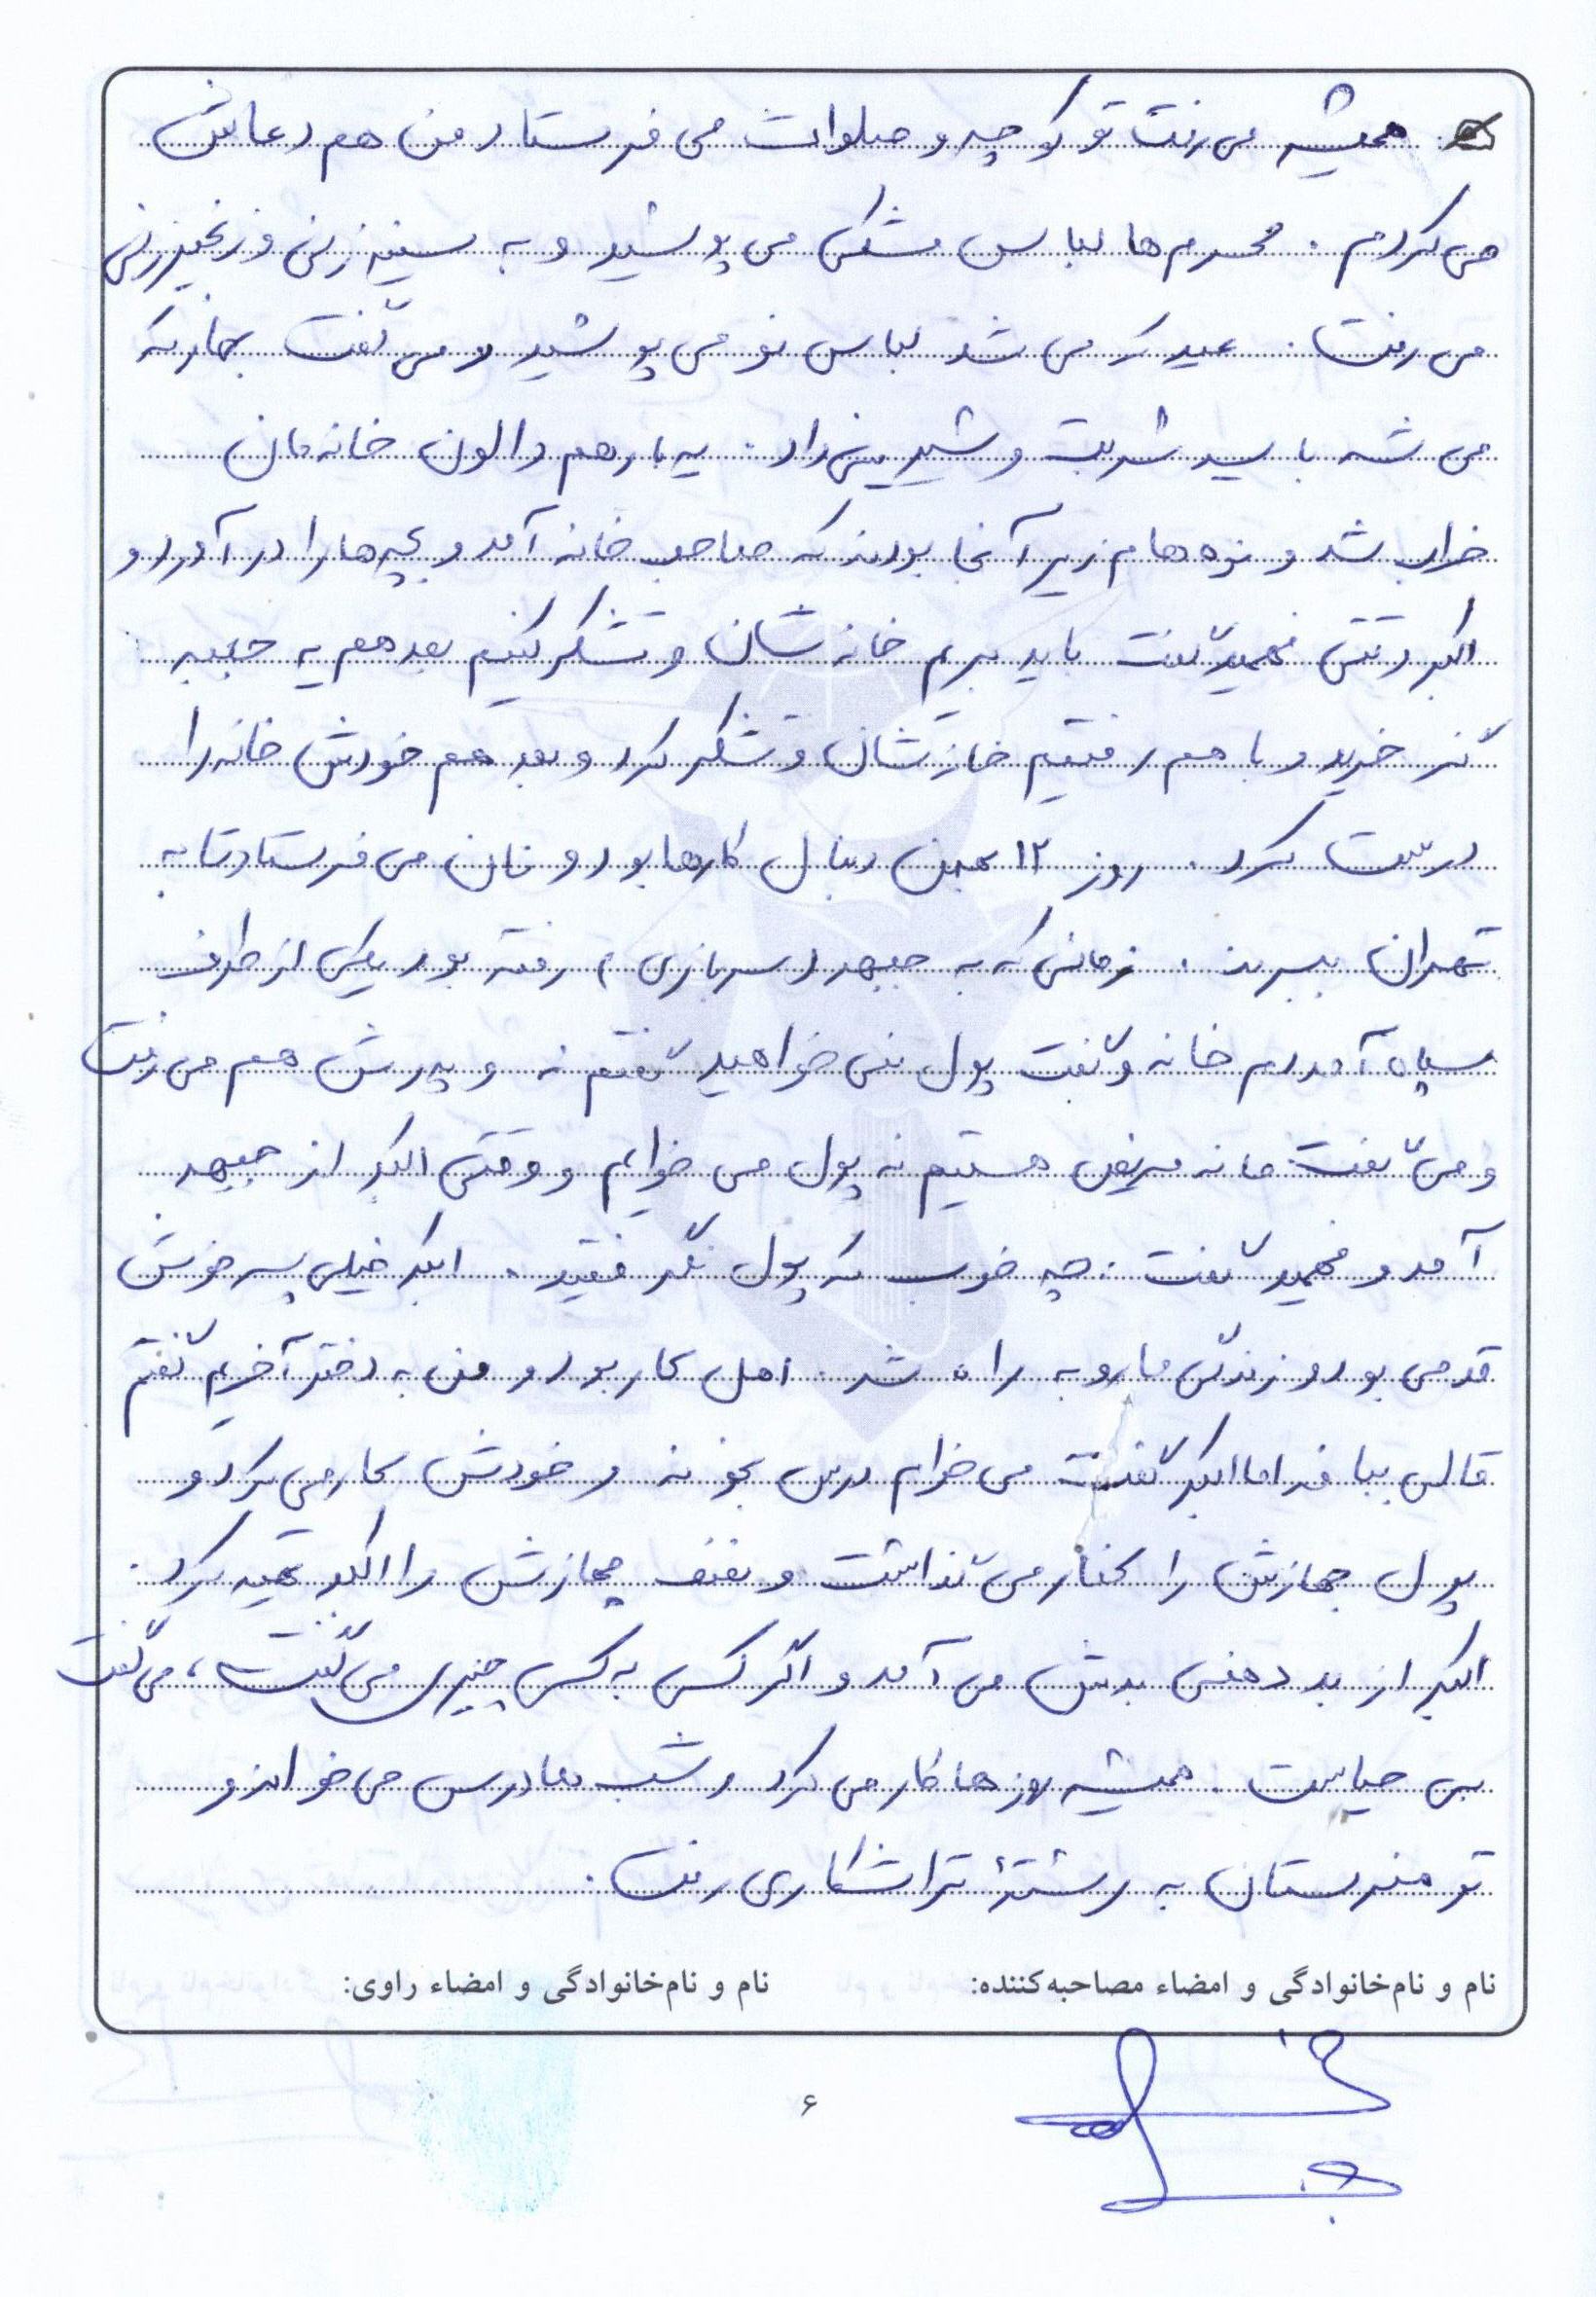 همیشه می رفت تو کوچه و صلوات می فرستاد من هم دعایش
می کردم . محرم ها لباس مشکی می پوشید و به سینه زنی و زنجیرزنی
می رفت . عید که می شد لباس نو می پوشید و می گفت بهار که
می شه باید شربت و شیرینی داد . یه بار هم دالون خانه مان
خراب شد و نوه هام زیر آنجا بودند که صاحب خانه آمد و بچه ها را در آورد و
اکبر وقتی فهمید گفت باید بریم خانه شان و تشکر کنیم بعد هم یه جعبه
گز خرید و با هم رفتیم خانه شان و تشکر کرد و بعد هم خودش خانه را
درست کرد . روز ۱۲ بهمن دنبال کارها بود و نان می فرستاد تا به
تهران ببرند . زمانی که به جبهه (سربازی) رفته بود یکی از طرف
سپاه آمد درم خانه و گفت پول نمی خواهید گفتم نه و پدرش هم می رفت
و می گفت ما نه مریض هستیم نه پول می خوایم و وقتی اکبر از جبهه
آمد و فهمید گفت : چه خوب که پول نگرفتید . اکبر خیلی پسر خوش
قدمی بود و زندگی ما رو به راه شد . اهل کار بود و من به دختر آخریم گفتم
قالی ببافد اما اکبر گفت می خوام درس بخونه و خودش کار می کرد و
پول جهازش را کنار می گذاشت و نصف جهازش را اکبر تهیه کرد .
اکبر از بد دهنی بدش می آمد و اگر کسی به کسی چیزی می گفت ، می گفت
بی حیاست . همیشه روزها کار می کرد و شب ها درس می خواند و
تو هنرستان به رشتهٔ تراشکاری رفت .
نام و نام‌خانوادگی و امضاء مصاحبه‌کننده: نام و نام‌خانوادگی و امضاء راوی:
۶